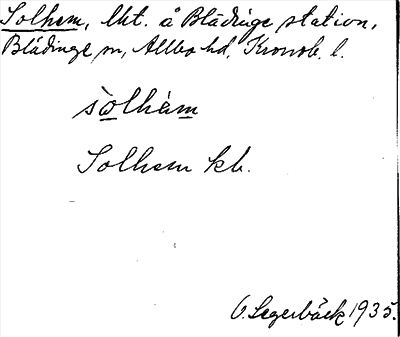 Solhem, lht. å Blädinge station,
Blädinge sn, Allbo hd, Kronob. l.
sòlhèm
Solhem kb.
O. Segerbäck 1935.